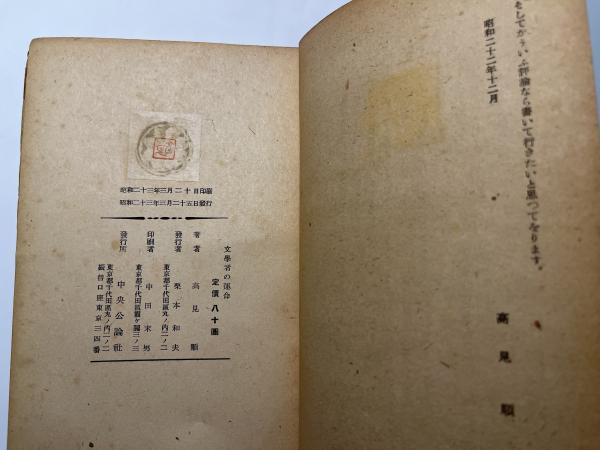 そしてかういふ評論なら書いて行きたいと思つてをります。
昭和二十二年十二月
高見順
昭和二十三年三月二十日印刷
昭和二十三年三月二十五日發行
文學者の運命
定價 八十圓
著者 高見順
發行者 栗本和夫
東京都千代田區丸ノ内二ノ二
印刷者 中田末男
東京都千代田區霞ケ關三ノ三
發行所 中央公論社
東京都千代田區丸ノ内二ノ二
振替口座東京三四番